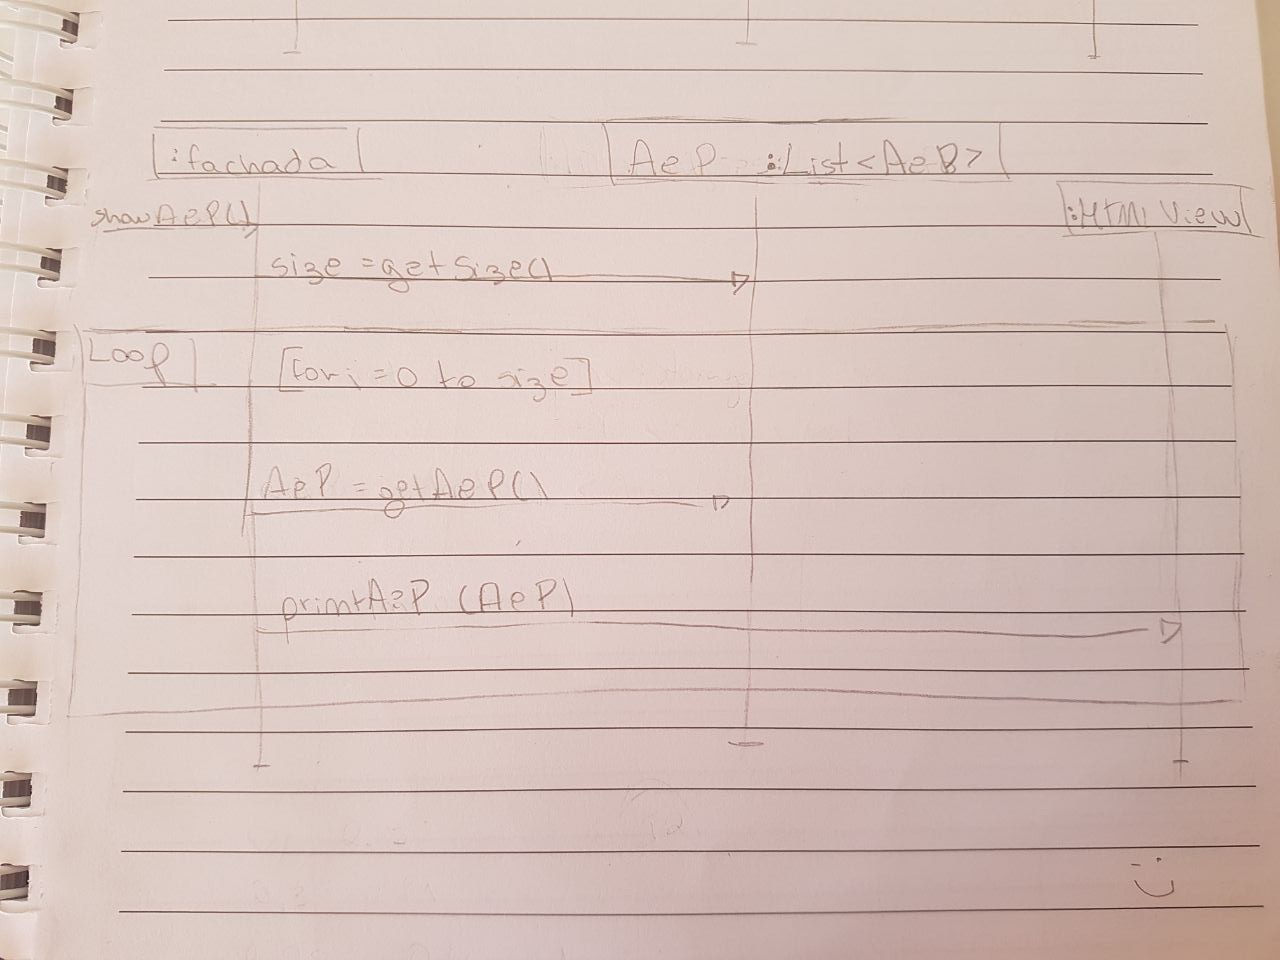 :fachada
AeP :List<AeB>
:HTML View
showAeP()
size = getSize()
Loop
[for i = 0 to size]
AeP = getAeP()
printAeP (AeP)